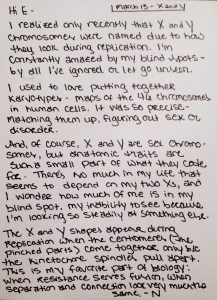 Hi E -
1 March 15 - X and Y
I realized only recently that X and Y
chromosomes were named due to how
they look during replication. I'm
constantly amazed by my blind spots -
by all I've ignored or let go unseen.
I used to love putting together
karyotypes - maps of the 46 chromosomes
in human cells. It was so precise -
matching them up, figuring out sex or
disorder.
And, of course, X and Y are sex chromo-
somes, but anatomic traits are
such a small part of what they code
for. There's so much in my life that
seems to depend on my two Xs, and
I wonder how much of me is in my
blind spot, my inability to see because
I'm looking so steadily at something else.
The X and Y shapes appear during
replication when the centromeres (the
pinched parts) come together only b/c
the kinetochore spindles pull apart.
This is my favorite part of biology:
when resistance serves union, when
separation and connection look very much the
same. - N